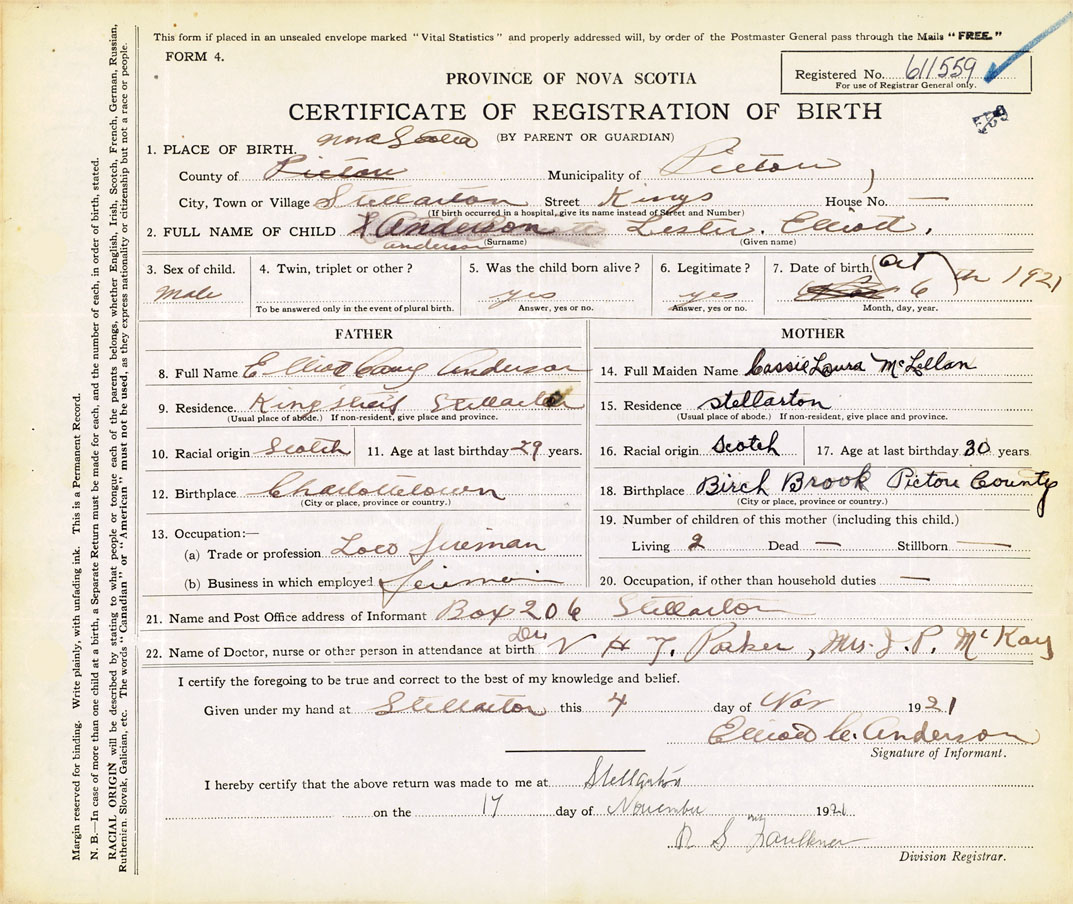 This form if placed in an unsealed envelope marked "Vital Statistics" and properly addressed will, by order of the Postmaster General pass through the Mails "FREE."
FORM 4.
Registered No. 611559
For use of Registrar General only.
PROVINCE OF NOVA SCOTIA
CERTIFICATE OF REGISTRATION OF BIRTH
(BY PARENT OR GUARDIAN)
1. PLACE OF BIRTH. Nova Scotia
County of Pictou Municipality of Pictou
City, Town or Village Stellarton Street Kings House No. —
(If birth occurred in a hospital, give its name instead of Street and Number)
2. FULL NAME OF CHILD Anderson Lester Elliott,
anderson (Surname) (Given name)
3. Sex of child. 4. Twin, triplet or other? 5. Was the child born alive? 6. Legitimate? 7. Date of birth. Oct
Male yes yes 6 1921
To be answered only in the event of plural birth. Answer, yes or no. Answer, yes or no. Month, day, year.
FATHER
8. Full Name Elliot Anderson
9. Residence. Stellarton
(Usual place of abode.) If non-resident, give place and province.
10. Racial origin Scotch 11. Age at last birthday 29 years.
12. Birthplace Charlottetown
(City or place, province or country.)
13. Occupation:—
(a) Trade or profession Loco fireman
(b) Business in which employed fireman
MOTHER
14. Full Maiden Name Cassie Laura McLellan
15. Residence stellarton
(Usual place of abode.) If non-resident, give place and province.
16. Racial origin Scotch 17. Age at last birthday 30 years
18. Birthplace Birch Brook Pictou County
(City or place, province or country.)
19. Number of children of this mother (including this child.)
Living 2 Dead — Stillborn —
20. Occupation, if other than household duties —
21. Name and Post Office address of Informant Box 206 Stellarton
22. Name of Doctor, nurse or other person in attendance at birth Dr V H T. Parker, Mrs. J. P. McKay
I certify the foregoing to be true and correct to the best of my knowledge and belief.
Given under my hand at Stellarton this 4 day of Nov 1921
Elliott C. Anderson
Signature of Informant.
I hereby certify that the above return was made to me at Stellarton
on the 17 day of November 1921
S Faulkner
Division Registrar.
Margin reserved for binding. Write plainly, with unfading ink. This is a Permanent Record.
N. B.—In case of more than one child at a birth, a Separate Return must be made for each, and the number of each, in order of birth, stated.
RACIAL ORIGIN will be described by stating to what people or tongue each of the parents belongs, whether English, Irish, Scotch, French, German, Russian,
Ruthenian, Slovak, Galician, etc. The words "Canadian" or "American" must not be used, as they express nationality or citizenship but not a race or people.